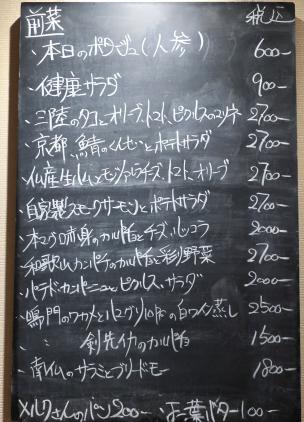 前菜 税込
・本日のポタージュ(人参) 600-
・健康サラダ 900-
・三陸のタコとオリーブ、トマト、ピクルスのマリネ 2700-
・京都 鯖のくんせいとポテトサラダ 2700-
・仏産生ハムとモッツァレラチーズ、トマト、オリーブ 2700-
・自家製スモークサーモンとポテトサラダ 2700-
・本マグロ赤身のカルパッチョとチーズ、ルッコラ 2000-
・和歌山カンパチのカルパッチョと彩り野菜 2700-
・パテドカンパーニュとピクルス、サラダ 2000-
・鳴門のワカメとハマグリ 白ワイン蒸し 2500-
・〃 剣先イカのカルパッチョ 1500-
・南仏のサラミとブリードモー 1800-
メルクさんのパン 200- ・バター 100-